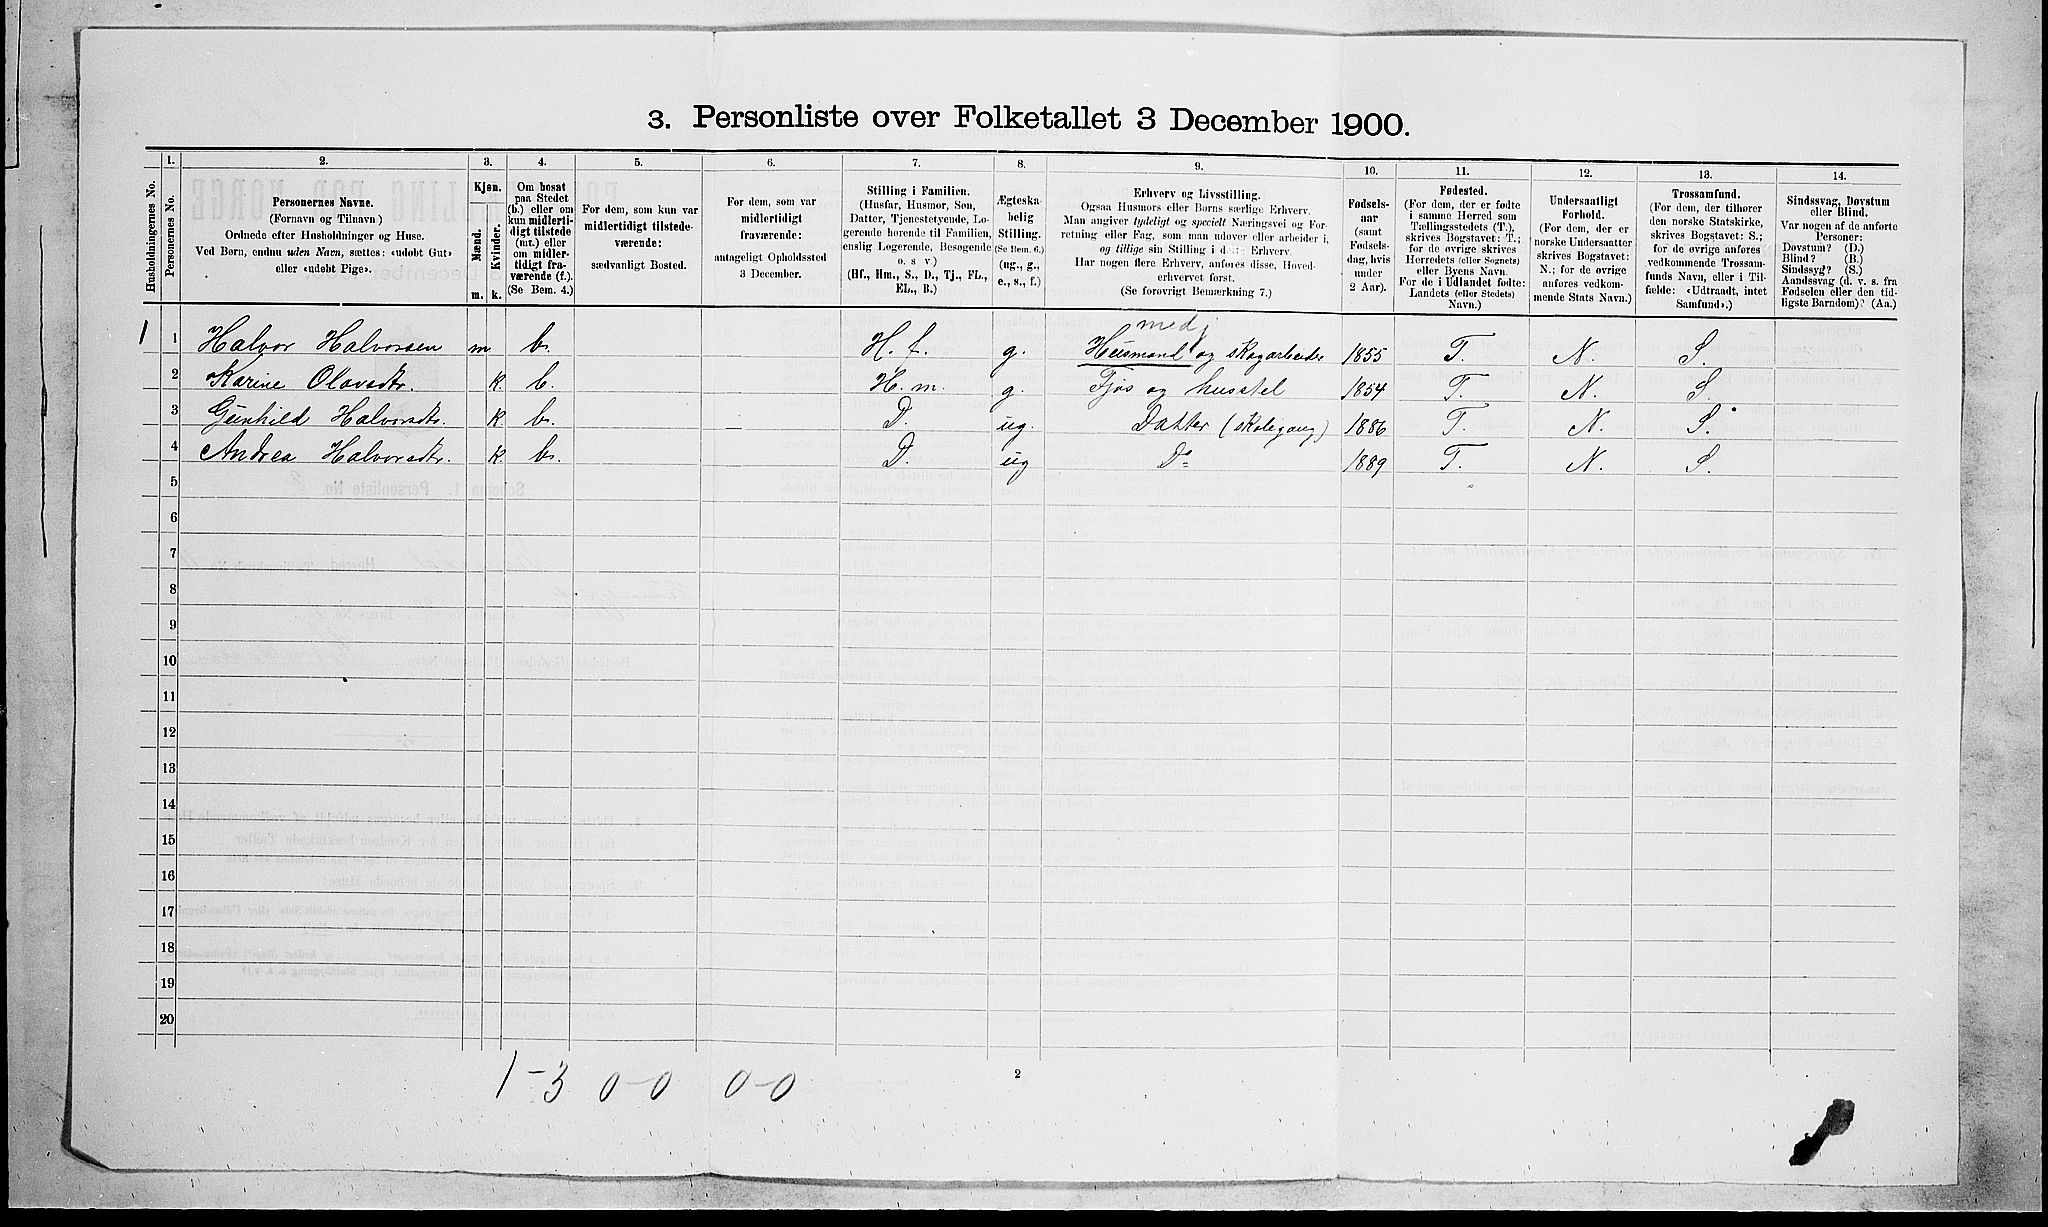 3. Personliste over Folketallet 3 December 1900.
Husholdningernes No.
1.
Personernes No.
2.
Personernes Navne.
(Fornavn og Tilnavn)
Ordnede efter Husholdninger og Huse.
Ved Børn, endnu uden Navn, sættes: «udøbt Gut»
eller «udøbt Pige».
3.
Kjøn.
Mænd.
Kvinder.
m.
k.
4.
Om bosat
paa Stedet
(b.) eller om
kun midlerti-
digt tilstede
(mt.) eller
om midler-
tidigt fra-
værende (f.).
(Se Bem. 4.)
5.
For dem, som kun var
midlertidigt tilstede-
værende:
sædvanligt Bosted.
6.
For dem, som var
midlertidigt
fraværende:
antageligt Opholdssted
3 December.
7.
Stilling i Familien.
(Husfar, Husmor, Søn,
Datter, Tjenestetyende, Lo-
gerende hørende til Familien,
enslig Logerende, Besøgende
o. s. v.)
(Hf., Hm., S., D., Tj., FL.,
EL., B.)
8.
Ægteska-
belig
Stilling.
(Se Bem. 6.)
(ug., g.,
e., s., f.)
9.
Erhverv og Livsstilling.
Ogsaa Husmors eller Børns særlige Erhverv.
Man angiver tydeligt og specielt Næringsvei og For-
retning eller Fag, som man udøver eller arbeider i,
og tillige sin Stilling i dette Erhverv.
Har nogen flere Erhverv, anføres disse, Hoved-
erhvervet først.
(Se forøvrigt Bemærkning 7.)
10.
Fødsels-
aar
(samt
Fødsels-
dag, hvis
under
2 Aar).
11.
Fødested.
(For dem, der er fødte
i samme Herred som
Tællingsstedets (T.),
skrives Bogstavet: T.;
for de øvrige skrives
Herredets (eller Sognets)
eller Byens Navn.
For de i Udlandet fødte:
Landets (eller Stedets)
Navn.)
12.
Undersaatligt
Forhold.
(For dem, der er
norske Undersaatter
skrives Bogstavet:
N.; for de øvrige
anføres vedkom-
mende Stats Navn.)
13.
Trossamfund.
(For dem, der tilhører
den norske Statskirke,
skrives Bogstavet: S.;
for de øvrige anføres
vedkommende Trossam-
funds Navn, eller i Til-
fælde: «Udtraadt, intet
Samfund».)
14.
Sindssvag, Døvstum
eller Blind.
Var nogen af de anførte
Personer:
Døvstum? (D.)
Blind? (B.)
Sindssyg? (S.)
Aandssvag (d. v. s. fra
Fødselen eller den tid-
ligste Barndom)? (Aa.)
med j
1 1 Halvor Halvorsen m b. H. f. g. Husmand og skogarbeider 1855 T. N. S.
2 Karine Olavsdtr. k. b. H. m. g. Fjøs og husstel 1854 T. N. S.
3 Gunhild Halvorsdtr. k b. — D. ug. Datter (skolegang) 1886 T. N. S.
4 Andrea Halvorsdtr. k. b. D. ug Do 1889 T. N. S.
5
6
7
8
9
10
11
12
13
14
15
16
17
18
19
20
1-3 0-0 0-0
2